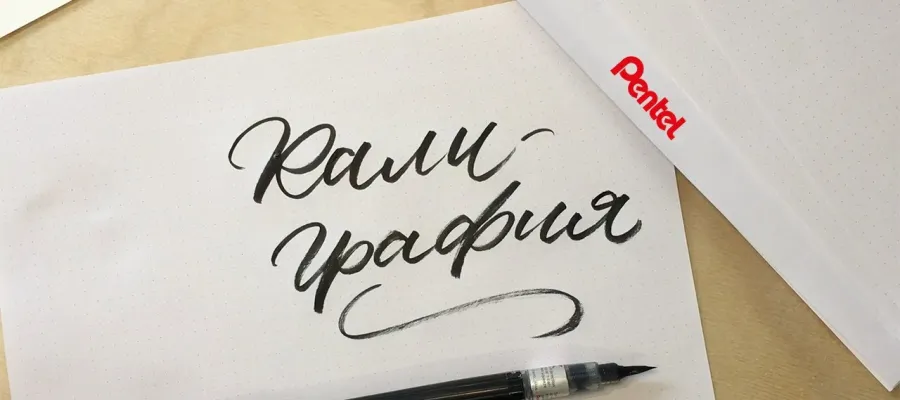 Кали-
графия
Pentel